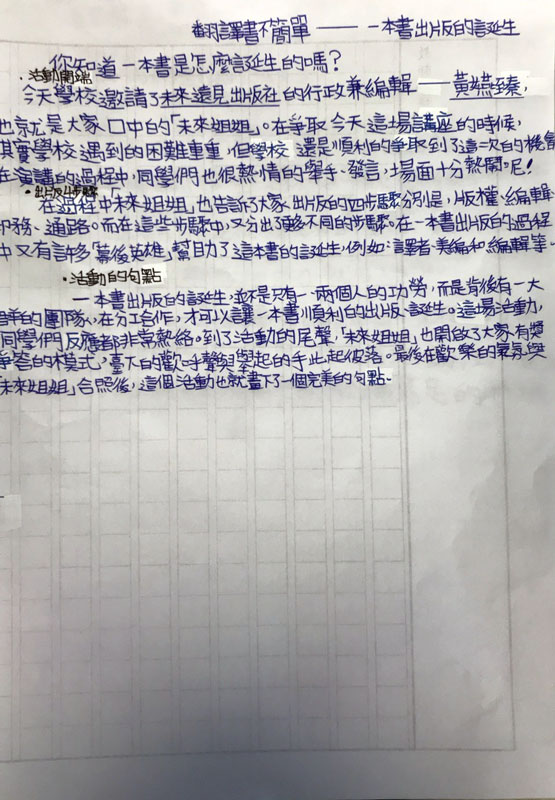 翻譯書不簡單——一本書出版的誕生
你知道一本書是怎麼誕生的嗎?
·活動開端
今天學校邀請了未來遠見出版社的行政兼編輯——黃嬿臻,
也就是大家口中的「未來姐姐」。在爭取今天這場講座的時候,
其實學校遇到的困難重重,但學校還是順利的爭取到了這一次的機會
在演講的過程中,同學們也很熱情的舉手、發言,場面十分熱鬧呢!
·出版4步驟
在過程中「未來姐姐」也告訴了大家出版的四步驟分別是,版權、編輯、
印務、通路。而在這些步驟中,又分出了多不同的步驟。在一本書出版的過程
中又有許多「幕後英雄」幫助了這本書的誕生,例如:譯者、美編和編輯等。
·活動的句點
一本書出版的誕生,並不是只有一兩個人的功勞,而是背後有一大
群的團隊,在分工合作,才可以讓一本書順利的出版、誕生。這場活動,
同學們反應都非常熱絡。到了活動的尾聲,「未來姐姐」也開啟了大家有獎
爭答的模式,臺大的歡呼聲與舉起的手此起彼落。最後在歡樂的氣氛與
「未來姐姐」合照後,這個活動也就畫下了一個完美的句點.